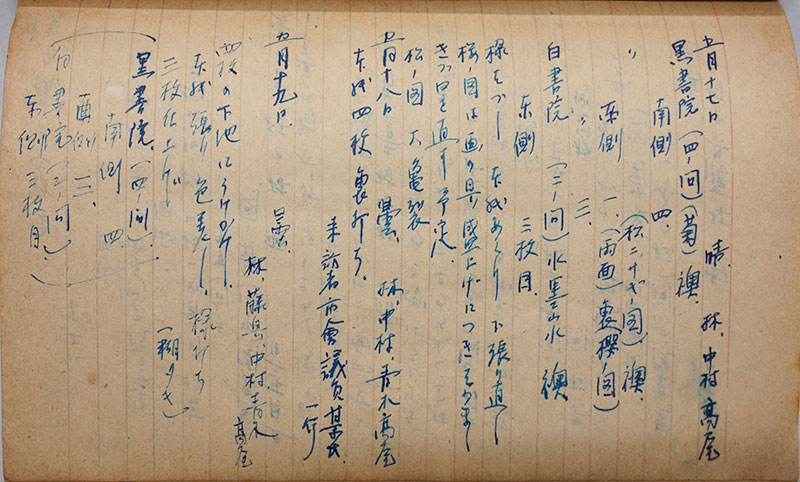 五月十七日 晴 林、中村 高尾
黒書院(四ノ間)(菊)襖
南側 四、
〃 (松ニナギノ図)襖
西側 一、(両面)裏(桜ノ図)
〃 三、
白書院(二ノ間)水墨山水 襖
東側 三枚目
縁はづし 本紙あらひ 下張り直し
桜ノ図は画の具盛上げにつき
直す予定
松ノ図 大亀裂
五月十八日 曇 林、中村、青木 高尾
本紙四枚裏打ち、
来訪者 市會議員某氏
一行
五月十九日 曇 林、藤具、中村、青木
高尾
四枚の下地にうけかけ、
本紙張り 色差し、縁打ち
三枚仕上げ (糊タキ)
黒書院(四ノ間)
南側 四
西側 一、三、
白書院(二ノ間)
東側 三枚目